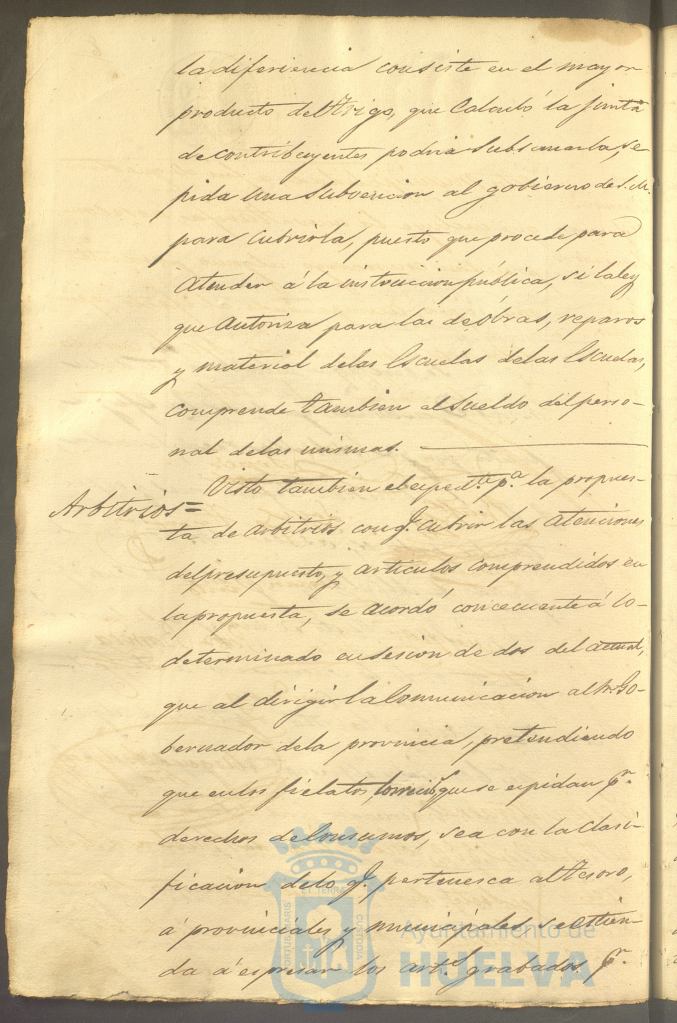 la diferiencia consiste en el mayor
producto del trigo, que Calculó la junta
de contribuyentes podria subsanarla, se
pida una subvencion al gobierno de S. M.
para cubrirla, puesto que procede para
atender á la instruccion pública, si la ley
que autoriza para las de obras, reparos
y material de las Escuelas de las Escuelas,
comprende tambien el sueldo del perso-
nal de las mismas.
Arbitrios=
Visto tambien el expedte. pa. la propues-
ta de arbitrios con q. cubrir las atenciones
del presupuesto, y articulos comprendidos en
la propuesta, se acordó concecuente á lo
determinado en sesion de dos del actual,
que al dirigir la Comunicacion al Sr. Go-
bernador de la provincia, pretendiendo
que en los fielatos, que se expidan pr.
derechos de Consumos, sea con la clasi-
ficacion de lo q. pertenesca al Tesoro,
á provinciales y municipales, se estien-
da á espresar los arts. grabados, pr.
Ayuntamiento de
HUELVA